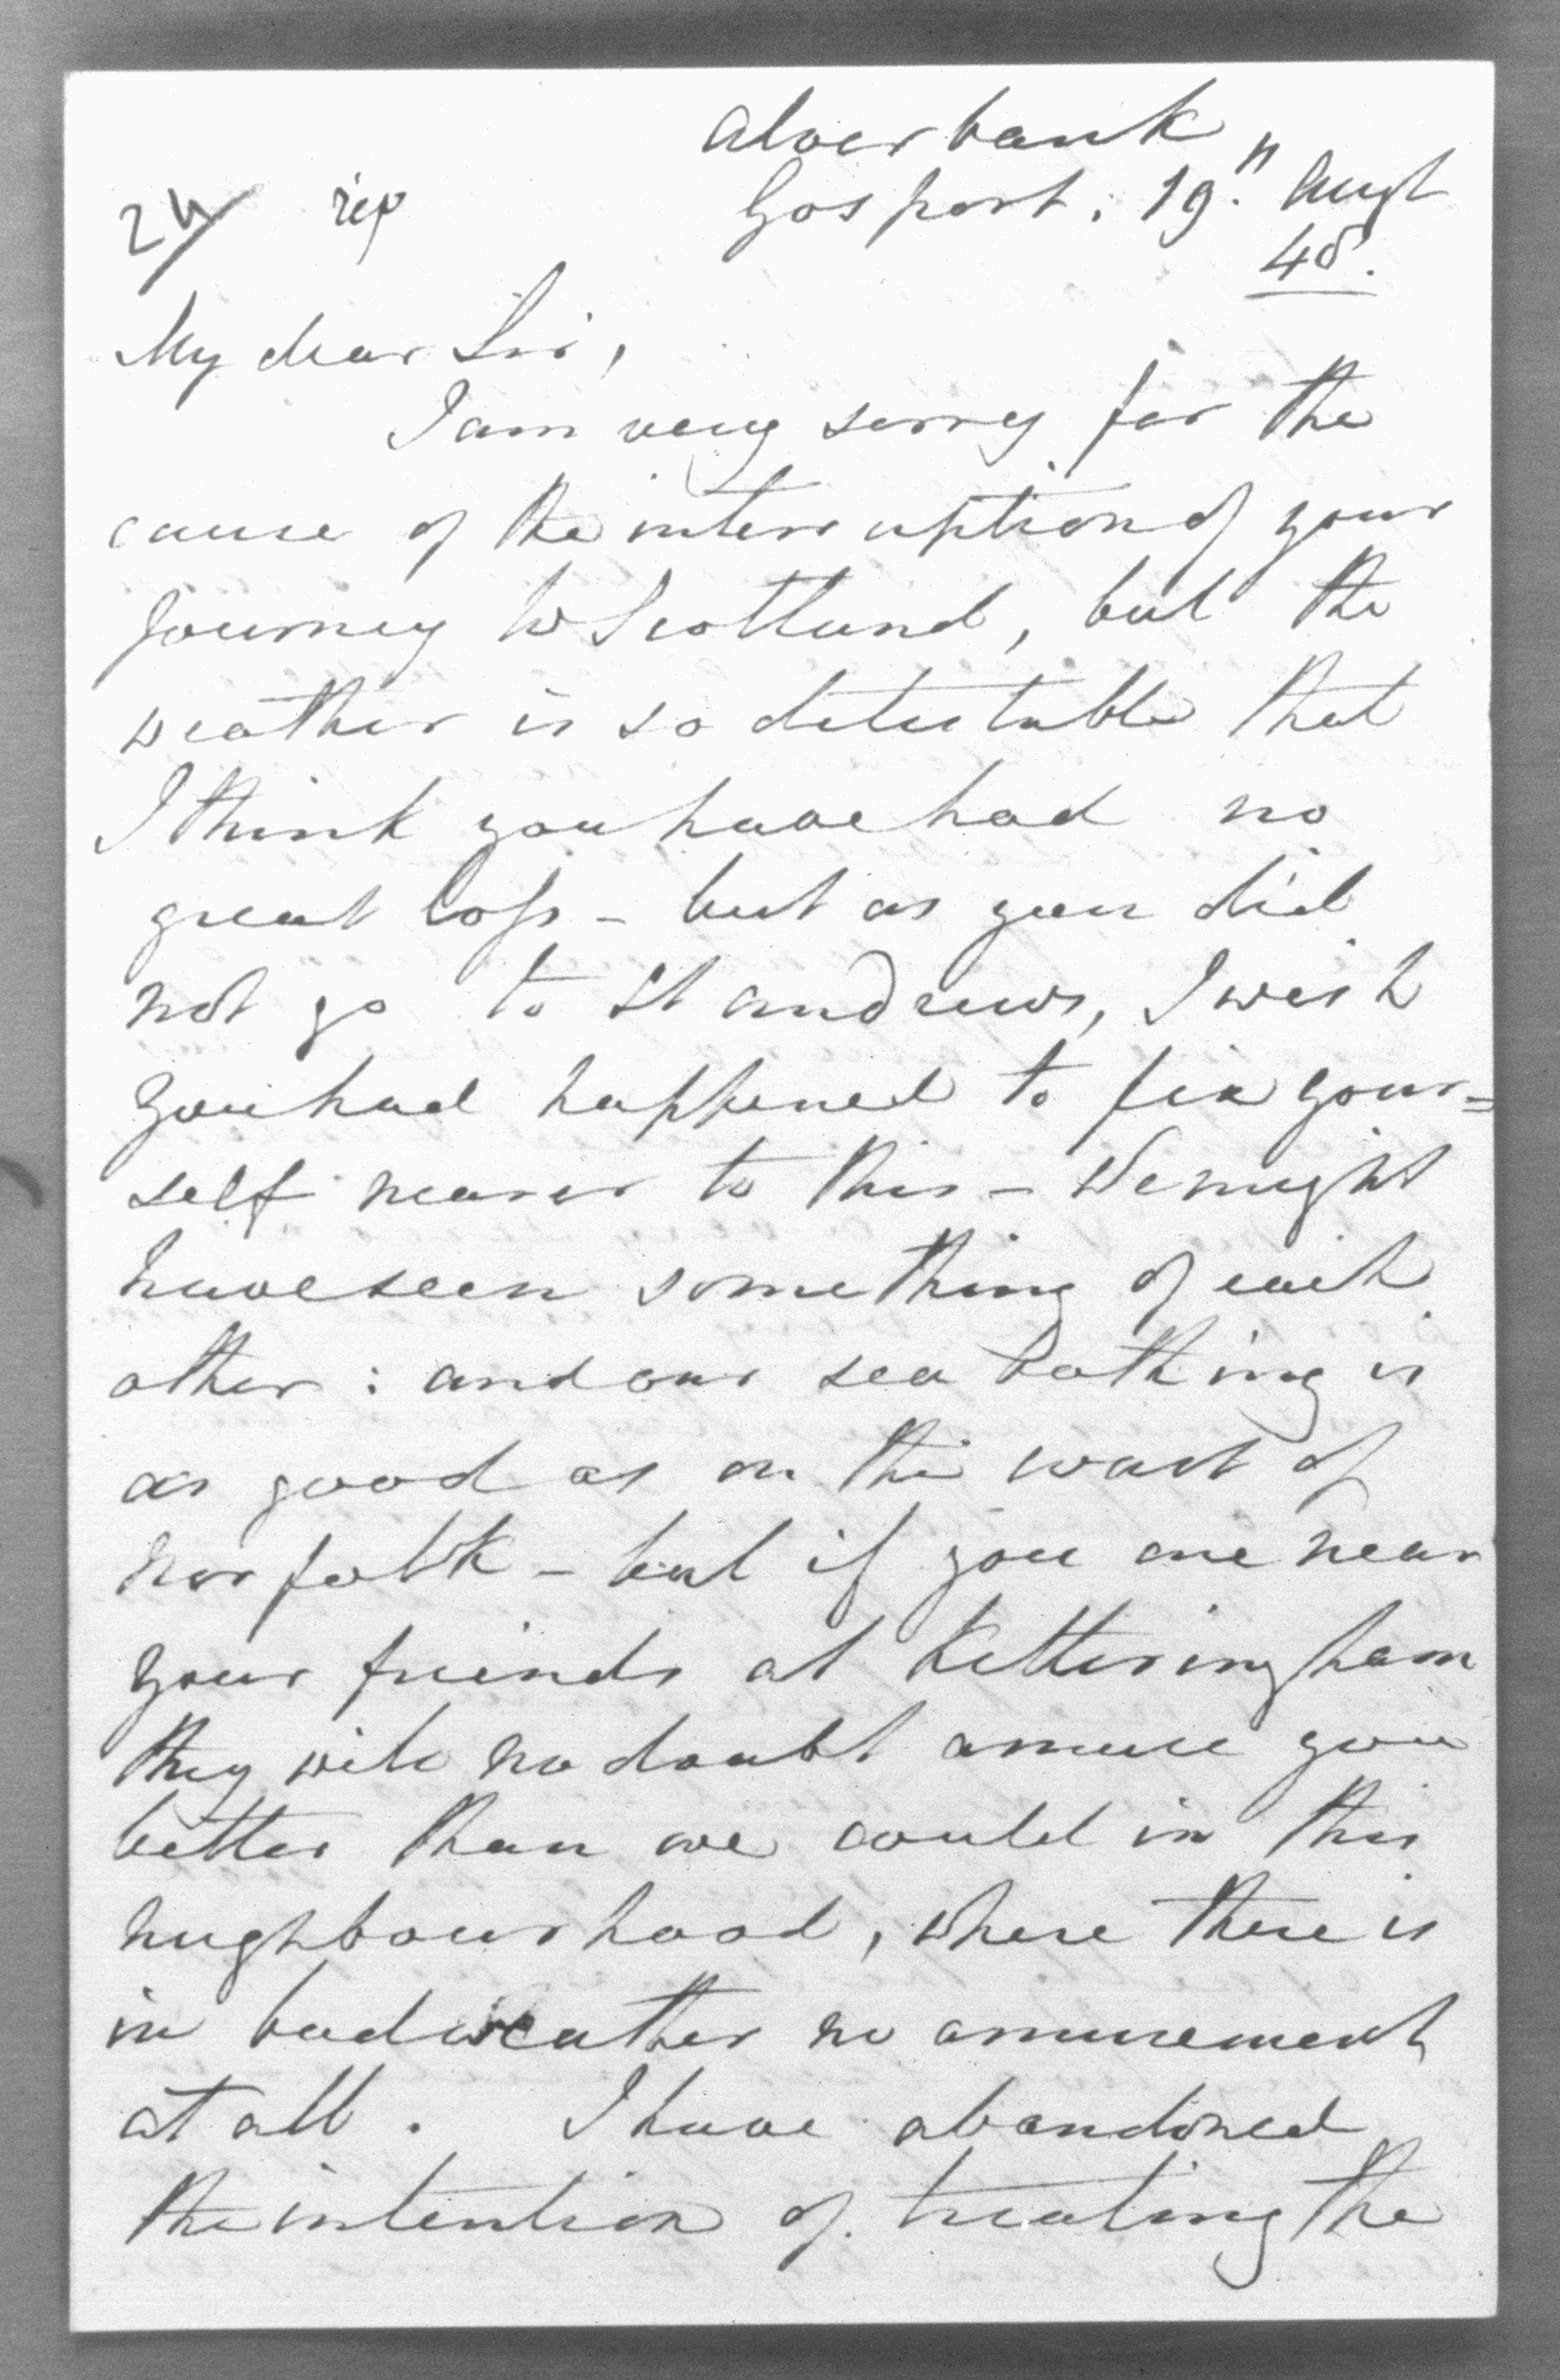 Alverbank
24 rep Gosport. 19." Augt
48.
My dear Sir,
I am very sorry for the
cause of the interruption of your
journey to Scotland, but the
weather is so detestable that
I think you have had no
great loss - but as you did
not go to St Andrews, I wish
you had happened to fix your=
self nearer to this - We might
have seen something of each
other : and our sea bathing is
as good as on the coast of
Norfolk - but if you are near
your friends at Ketteringham
they will no doubt amuse you
better than we could in this
neighbourhood, where there is
in bad weather no amusement
at all. I have abandoned
the intention of treating the